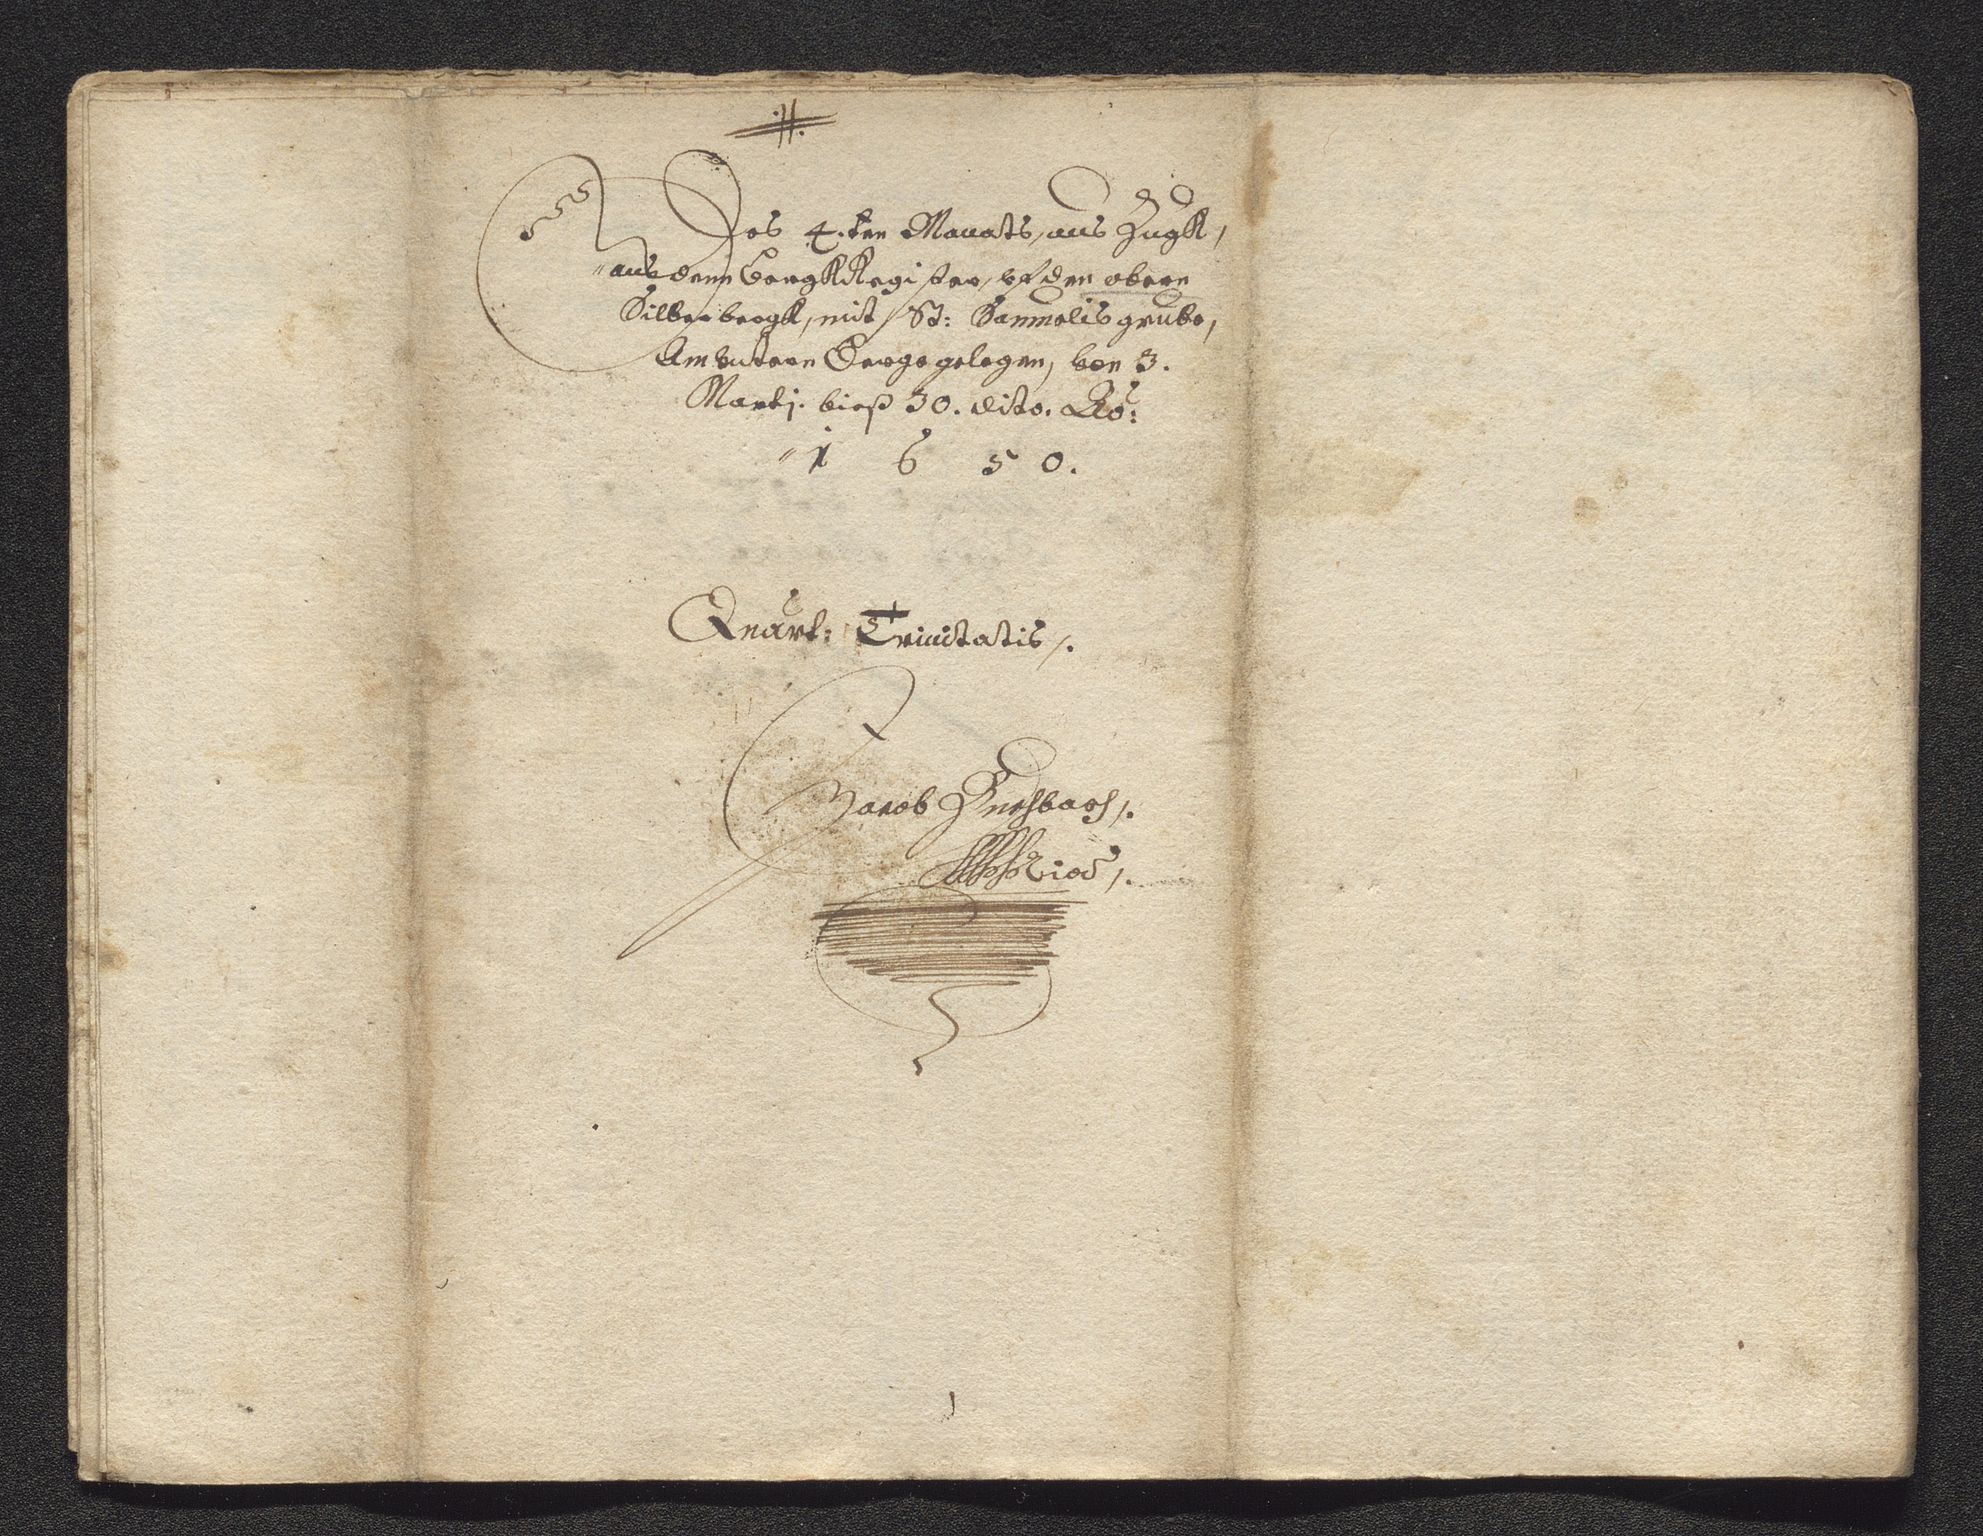 Des 4.ten Monats, aus Zugk,
aus dem BergkRegister, vf den obern
Silberbergk, mit St: Sammelis grube,
Am Vntern Berge gelegen, von 3.
Martj. bieß 30. dito. Ao:
1650.
Quart: Trinitatis /.
Jacob Buchbach /.